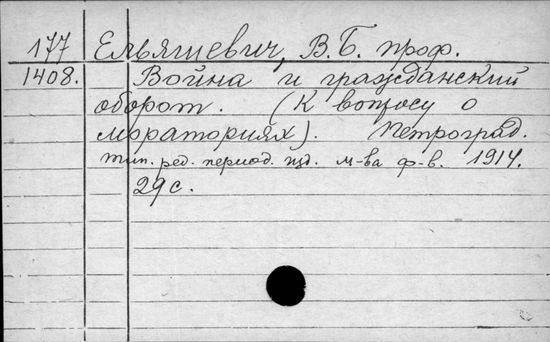 177 Ельяшевич, В.Б. проф.
1408. Война и гражданский
оборот. (К вопросу о
мораториях). Петроград.
тип. ред. период. изд. м-ва ф-в. 1914.
29 с.